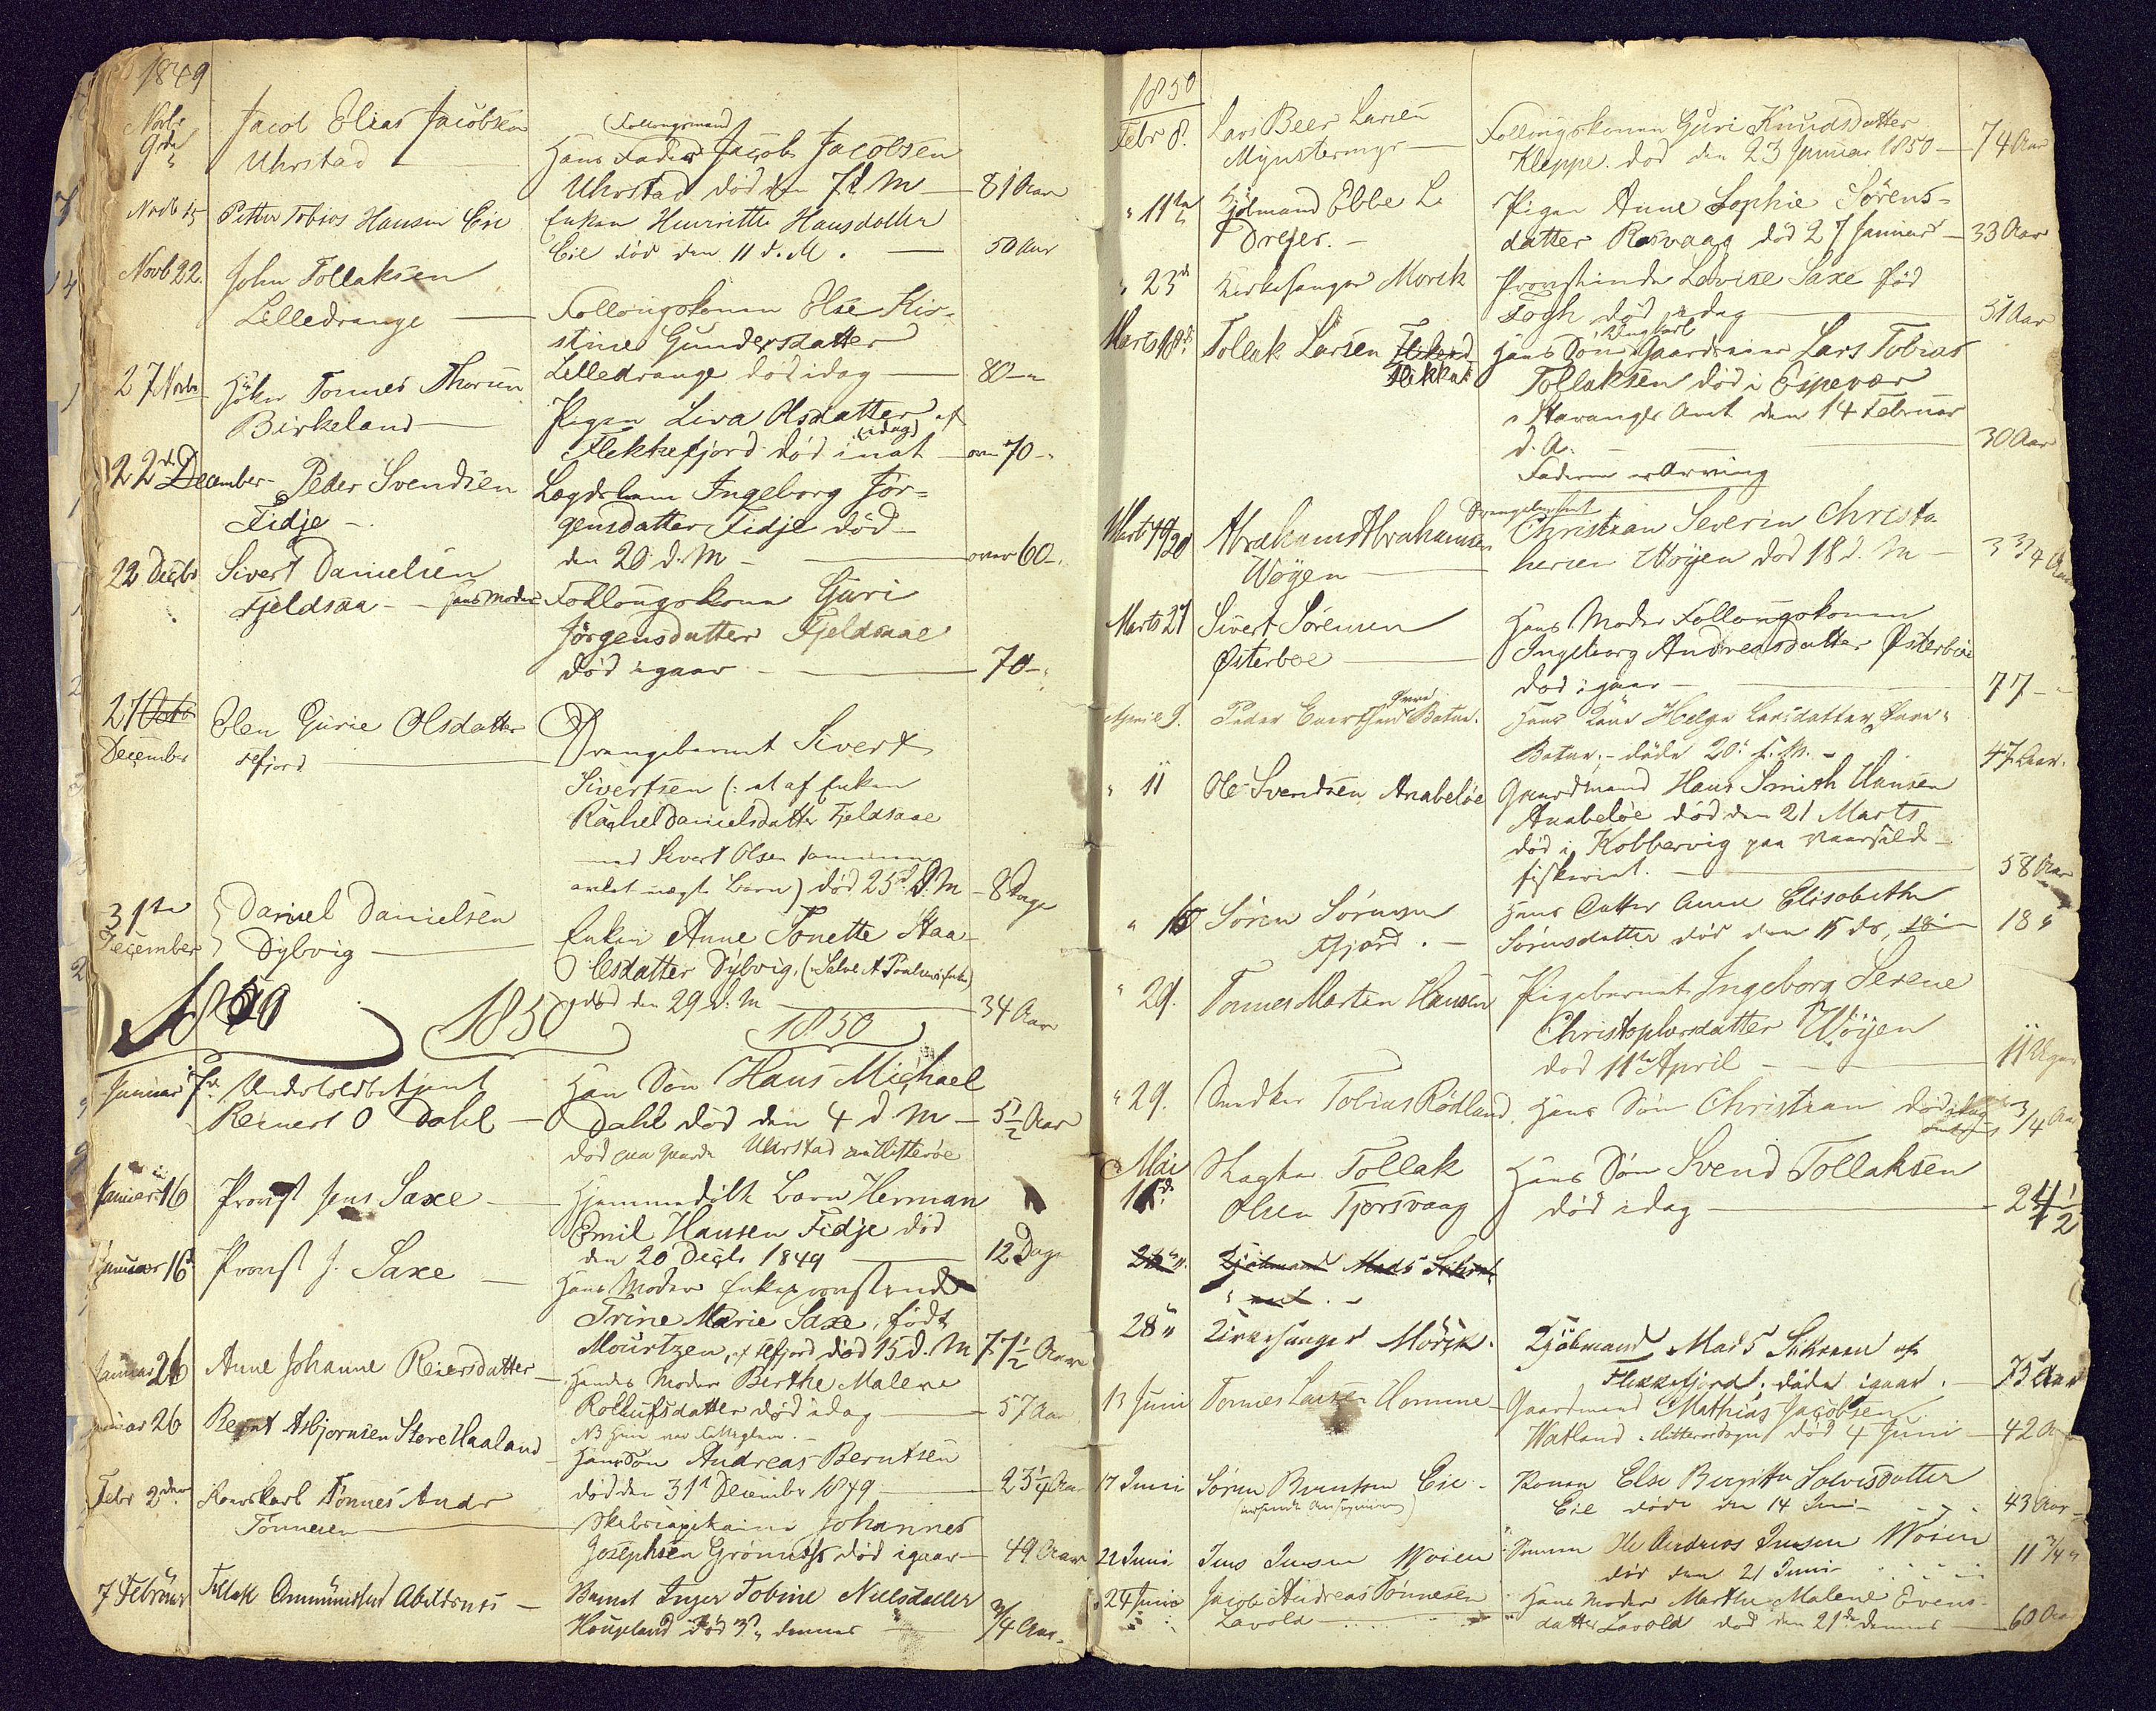 1849
Novbr 9de Jacob Elias Jacobsen
Uhrstad
(Follougsmand)
Hans Fader Jacob Jacobsen
Uhrstad død den 7d M 81 Aar
Novb 15 Petter Tobias Hansen Eie
Enken Henriette Hansdatter
Eie død den 11 d. M. 50 Aar
Novb 22. John Tollaksen
Lilledrange
Follougskonen Else Kir-
stine Gundersdatter
Lilledrange død idag 80 "
27 Novbr Tønnes Thorsen
Birkeland
Pigen Siva Olsdatter af
Flekkefjord død inat (idag) over 70 "
22d December Peder Svendsen
Fidje
Lægdslem Ingeborg Jør-
gensdatter Fidje død
den 20 d. M over 60 "
22 Decbr Sivert Danielsen
Fjeldsaa - Hans Moder
Follougskone Guri
Jørgensdatter Fjeldsaae
død igaar 70 "
27 Octb
December
Elen Gurie Olsdatter
Drengebarnet Sivert
Sivertsen (: et af Enken
Rachel Danielsdatter Fjeldsaae
med Sivert Olsen sammen
avlet uægte Barn) død 25d d. M 8 Dage
31te December Daniel Danielsen
Dybvig
Enken Anne Tonette Staa-
lesdatter Dybvig, (Salve A Poulsens Enke)
død den 29 d. M 34 Aar
1850 1850 1850
Januar 7d Undertoldbetjent
Reinert O Dahl
Han Søn Hans Michael
Dahl død den 4 d M 5½ Aar
død paa Gaarde Uhrstad Hitterøe
Januar 16 Provst Jens Saxe
Hjemmedøbt Barn Herman
Emil Hansen Fidje død
den 20 Decbr 1849 12 Dage
Januar 16d Provst J. Saxe
Hans Moder Enkeprovstinde
Trine Marie Saxe, født
Mourtzen, død 15 d. M 77½ Aar
Januar 26 Anne Johanne Reiersdatter
Hendes Moder Berthe Malene
Rollufsdatter død idag 57 Aar
NB Hun var
Januar 26 Bernt Asbjørnsen Store Haaland
Hans Søn Andreas Berntsen
død den 31te December 1849 23¼ Aar
Febr 2den Tønnes Andr
Tønnesen
Skibscapitaine Johannes
Josephsen Grønnes død igaar 49 Aar
7 Februar Tollak Ommundsen Abildsnes
Barnet Inger Tobine Nielsdatter
Houpland død 3d dennes ¾ Aar
1850
Febr 8. Lars Beer Larsen
Mynstermgr
Follougskonen Guri Knudsdatter
Kleppe død den 23 Januar 1850 74 Aar
" 11te Kjøbmand Ebbe L.
Dreyer.
Pigen Anne Sophie Sørens-
datter Rasvaag død 27 Januar 33 Aar
" 23d Kirkesanger Mørck
Provstinde Lovise Saxe fød
Fogh død idag 51 Aar
Marts 18d Tollak Larsen Flikka
Flikka
Hans Søn Ungkarl Gaardeier Lars Tobias
Tollaksen død i Espevær
i Stavanger Amt den 14 Februar
d. A. 30 Aar
Faderen er Arving
Marts 19/20 Abraham Abrahamsen
Wøyen
Drengebarnet
Christian Severin Christo-
hersen Wøyen død 18 d. M 3¾ Aar
Marts 27 Sivert Sørensen
Østerboe
Hans Moder Follougskonen
Ingeborg Andreasdatter Østerboe
død igaar 77 "
April 9. Peder Evertsen Øvre Batne.
Hans Kone Helga Larsdatter Øvre
Batne, døde 20 f. M. 47 Aar.
" 11 Ole Svendsen Anabeløe
Gaardmand Hans Smith Hansen
Anabeløe død den 21 Marts
død i Kobbervig paa Vaarsild-
fiskeriet. 58 Aar
" 16 Søren Sørensen
Hans Datter Anne Elisabeth
Sørensdatter død den 15 ds, 18 "
" 29. Tønnes Martin Hansen
Pigebarnet Ingeborg Serene
Christophersdatter Wøyen
død 11te April 11 Uger
" 29. Snedker Tobias Rødland
Hans Søn Christian død idag ¾ Aar
Mai Tollak
Olsen Fjorsvaag
Hans Søn Svend Tollaksen
død idag 24½
Kjøbmand Mads
28 " Kirkesanger Mørck.
Kjøbmand Mads Sikveen af
Flekkefjord, døde igaar. 75 Aar
13 Juni Tønnes Larsen Homme
Gaardmand Mathias Jacobsen
Watland i Hitterø Sogn død 4 Juni 42 Aar
17 Juni Søren Berntsen Eie
Konen Else Birgitte Salvesdatter
Eie døde den 14 Juni 43 Aar
22 Juni Jens Jensen Wøien
Sønnen Ole Andreas Jensen Wøien
død den 21 Juni 11¾ "
24 Juni Jacob Andreas Tønnesen
Lavold
Hans Moder Marthe Malene Evens-
datter Lavold død den 21de dennes 60 Aar